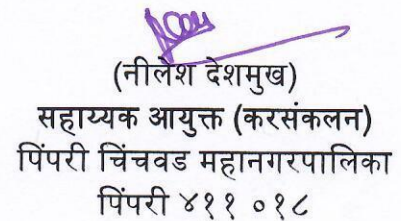 (नीलेश देशमुख)
सहाय्यक आयुक्त (करसंकलन)
पिंपरी चिंचवड महानगरपालिका
पिंपरी ४११ ०१८